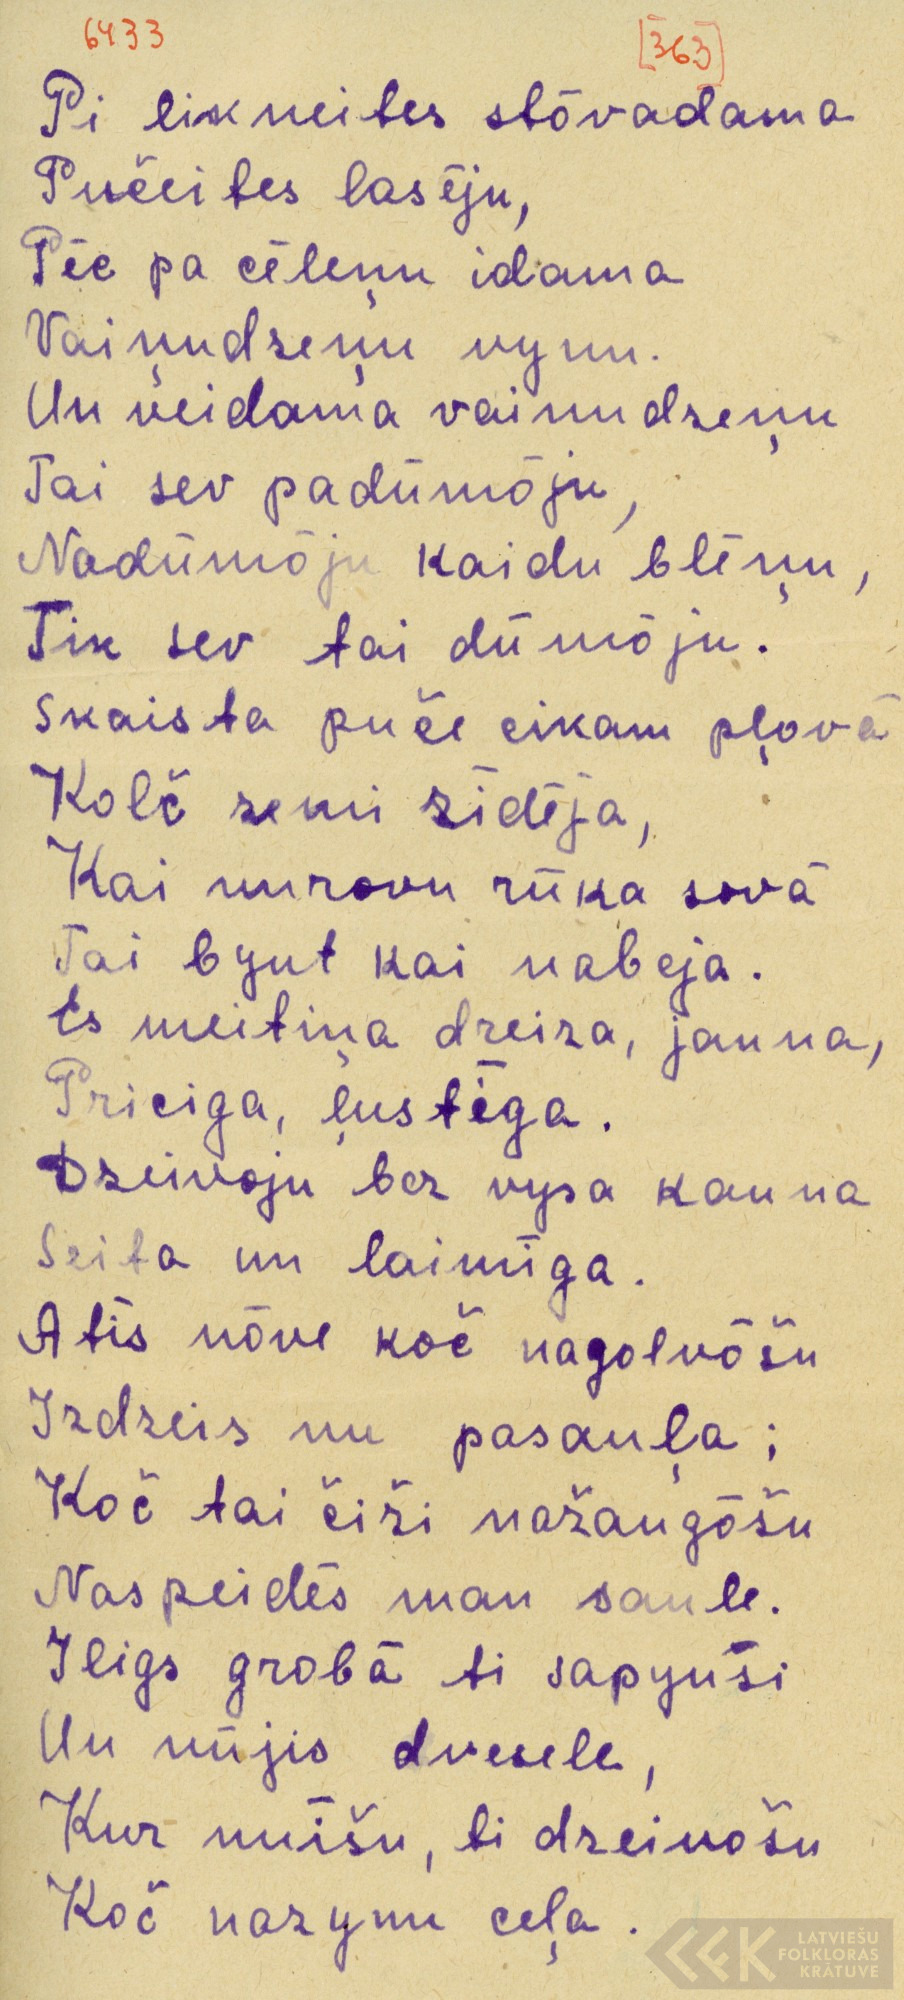 6433 [363]
Pi likneites stōvadama
Pučeites lasēju,
Pēc pa cēleņu idama
Vaiņudzeņu vynu.
Un veidama vainudzeņu
Tai sev padūmōju,
Nadūmōju kaidu blēņu,
Tik sev tai dūmōju.
Skaista puče cikam pļovā
Kolč zemi zīdēja,
Kai murovu rūka sovā
Tai byut kai nabeja.
Es meitiņa dzeiza, jauna,
Priciga, ļustēga.
Dzeivoju bez vysa kauna
Seita un laimīga.
Atīs nōve koč nagolvōšu
Izdzeis nu pasauļa;
Koč tai čiži nažaugōšu
Naspeidēs man saule.
Iligs grobā ti sapyuši
Un nūjis dvesele,
Kur muīšu, ti dzeivōšu
Koč nazynu ceļa.
LATVIEŠU
FOLKLORAS
KRĀTUVE